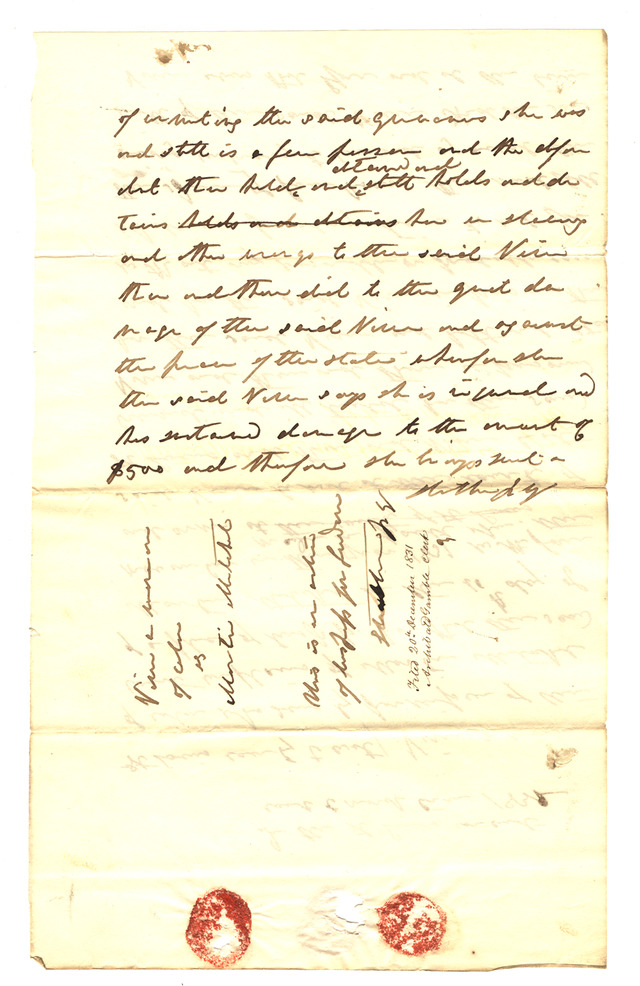 of committing the said grievances she was
and still is a free person and the defen
dant then held, and, still holds and de
detained and
tains holds and detains her in slavery
and other wrongs to the said Vina
then and there did to the great da
mage of the said Vina and against
the peace of the state wherefore she
the said Vina says she is injured and
has sustained damage to the amount of
$500 and therefore she brings suit &
Vina a woman
of color
vs
Martin Mitchell
this is an action
of trespass for freedom
Filed 20th December 1831
Archibald Gamble clerk